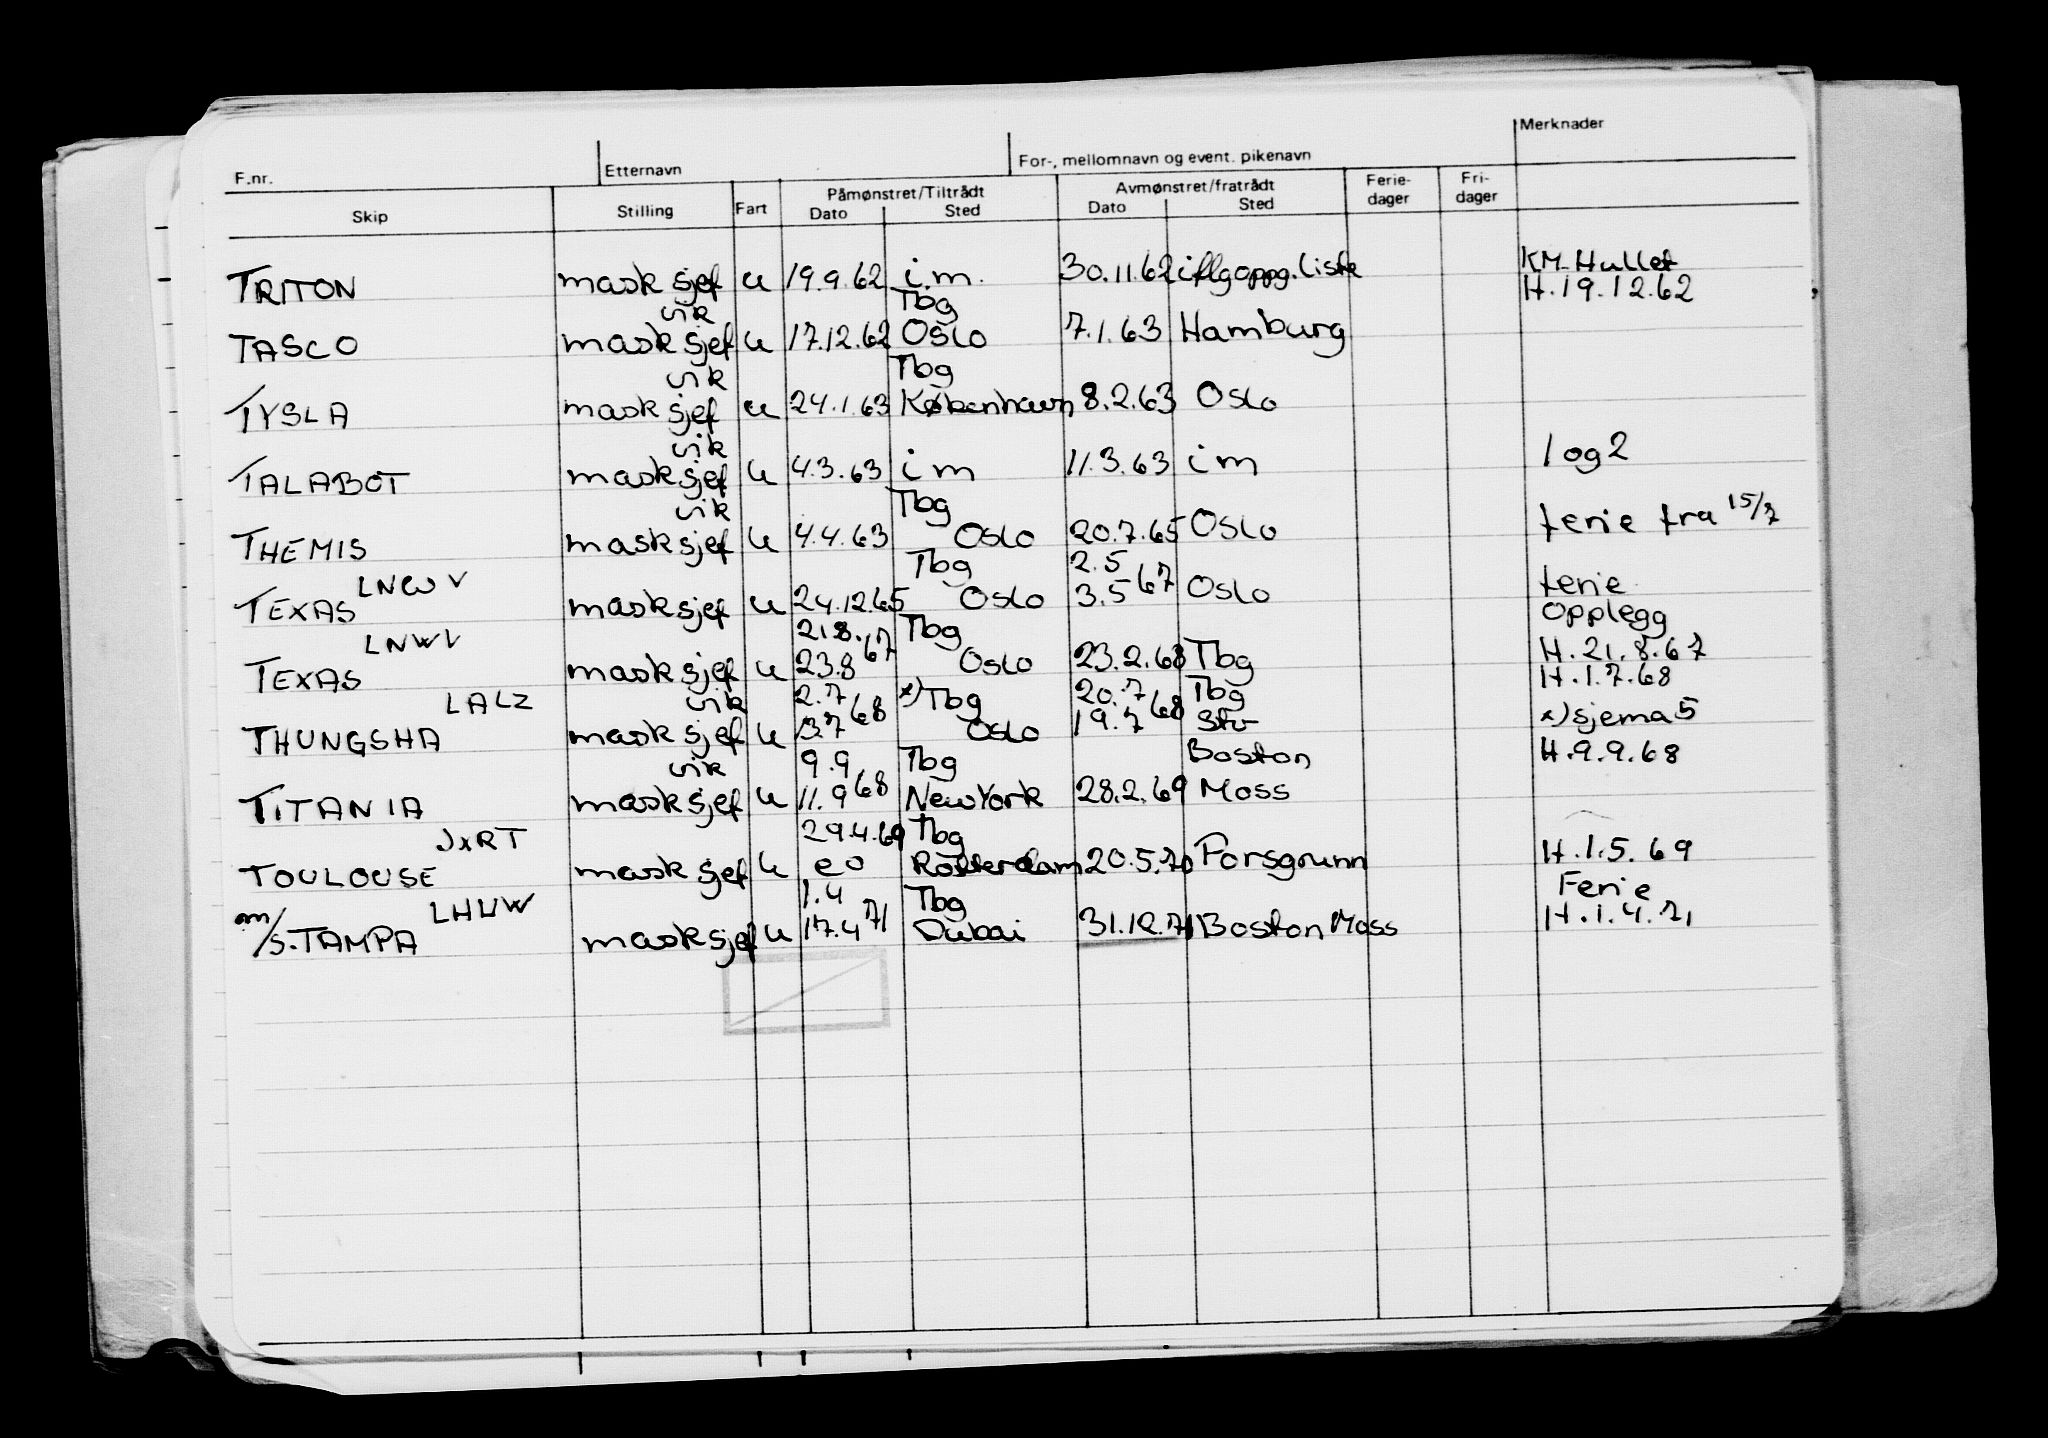 Merknader
F.nr. Etternavn For-, mellomnavn og event. pikenavn
Påmønstret/Tiltrådt Avmønstret/fratrådt Ferie- Fri-
Skip Stilling Fart Dato Sted Dato Sted dager dager
KM-Hullet
TRITON mask sjef u 19.9.62 i.m. 30.11.62 iflg oppg. liste H. 19.12.62
vik Tbg
TASCO mask sjef u 17.12.62 Oslo 7.1.63 Hamburg
vik Tbg
TYSLA mask sjef u 24.1.63 København 8.2.63 Oslo
vik
TALABOT mask sjef u 4.3.63 i m 11.3.63 i m 1 og 2
vik Tbg
THEMIS mask sjef u 4.4.63 Oslo 20.7.65 Oslo ferie fra 15/7
LNWV Tbg 2.5 ferie
TEXAS mask sjef u 24.12.65 Oslo 3.5 67 Oslo opplegg
LNWV 21.8. Tbg H. 21.8.67
TEXAS mask sjef u 23.8 67 Oslo 23.2.68 Tbg H. 1.7.68
LALZ vik 2.7 x) Tbg 20.7 Tbg
THUNGSHA mask sjef u 3.7 68 Oslo 19.7 68 x) sjema 5
vik 9.9 Tbg Boston H. 9.9.68
TITANIA mask sjef u 11.9 68 New York 28.2.69 Moss
JXRT 29.4.69 Tbg
TOULOUSE mask sjef u eo Rotterdam 20.5.70 Porsgrunn H. 1.5.69
LHUW 1.4 Tbg Ferie
m/s. TAMPA mask sjef u 17.4 71 Dubai 31.12.71 Boston Mass H. 1.4.71